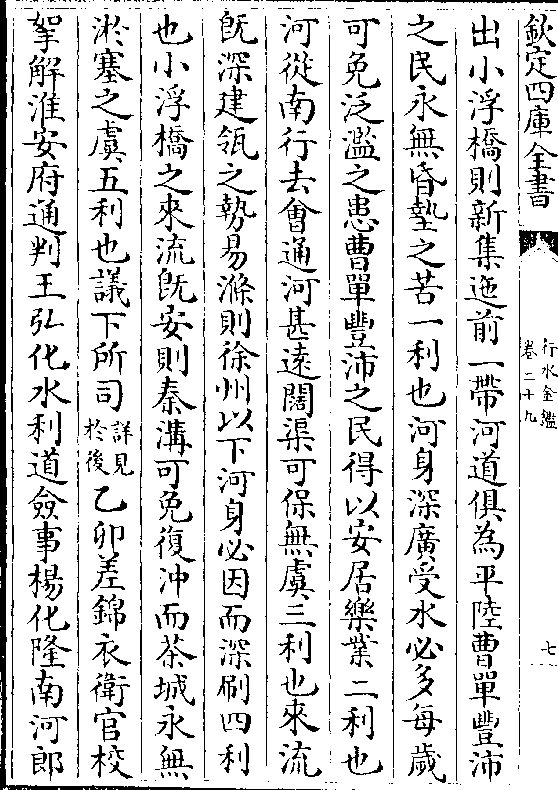 欽定四庫全書
行水金鑑
卷二十九
七
出小浮橋則新集迤前一帶河道俱為平陸曹單豐沛
之民永無昏墊之苦一利也河身深廣受水必多每歲
可免泛濫之患曹單豐沛之民得以安居樂業二利也
河從南行去會通河甚遠闊渠可保無虞三利也來流
既深建瓴之勢易滌則徐州以下河身必因而深刷四利
也小浮橋之來流既安則秦溝可免復冲而茶城永無
淤塞之虞五利也議下所司詳見於後乙卯差錦衣衛官校
拏解淮安府通判王弘化水利道僉事楊化隆南河郎